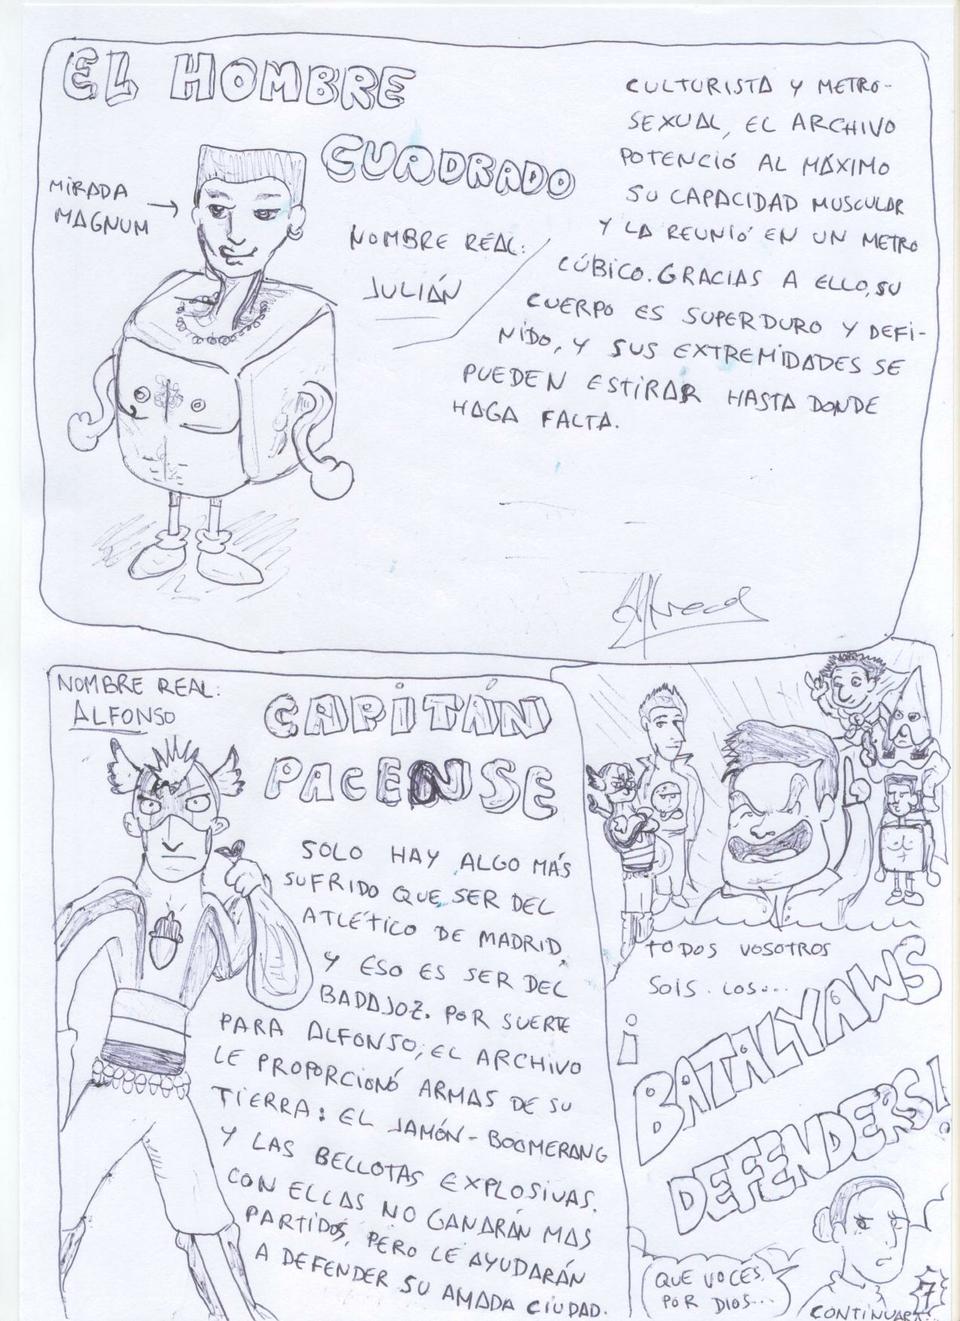 EL HOMBRE
CUADRADO
MIRADA
MAGNUM
NOMBRE REAL:
JULIÁN
CULTURISTA Y METRO-
SEXUAL, EL ARCHIVO
POTENCIÓ AL MÁXIMO
SU CAPACIDAD MUSCULAR
Y LA REUNIÓ EN UN METRO
CÚBICO. GRACIAS A ELLO, SU
CUERPO ES SUPERDURO Y DEFI-
NIDO, Y SUS EXTREMIDADES SE
PUEDEN ESTIRAR HASTA DONDE
HAGA FALTA.
NOMBRE REAL:
ALFONSO
CAPITÁN
PACENSE
SOLO HAY ALGO MÁS
SUFRIDO QUE SER DEL
ATLÉTICO DE MADRID,
Y ESO ES SER DEL
BADAJOZ. POR SUERTE
PARA ALFONSO, EL ARCHIVO
LE PROPORCIONÓ ARMAS DE SU
TIERRA: EL JAMÓN-BOOMERANG
Y LAS BELLOTAS EXPLOSIVAS.
CON ELLAS NO GANARÁN MAS
PARTIDOS, PERO LE AYUDARÁN
A DEFENDER SU AMADA CIUDAD.
TODOS VOSOTROS
SOIS LOS...
¡BATALYAWS
DEFENDERS!
QUE VOCES,
POR DIOS...
CONTINUAR
7